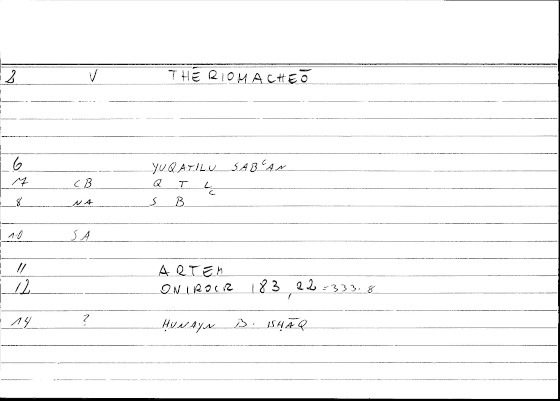 2 V THĒRIOMACHEŌ
6 YUQATILU SABʿAN
17 CB Q T L
8 NA S B ʿ
10 SA
11 ARTEM
12 ONIROCR 183, 22 = 333.8
14 ? ḤUNAYN B. ISḤĀQ